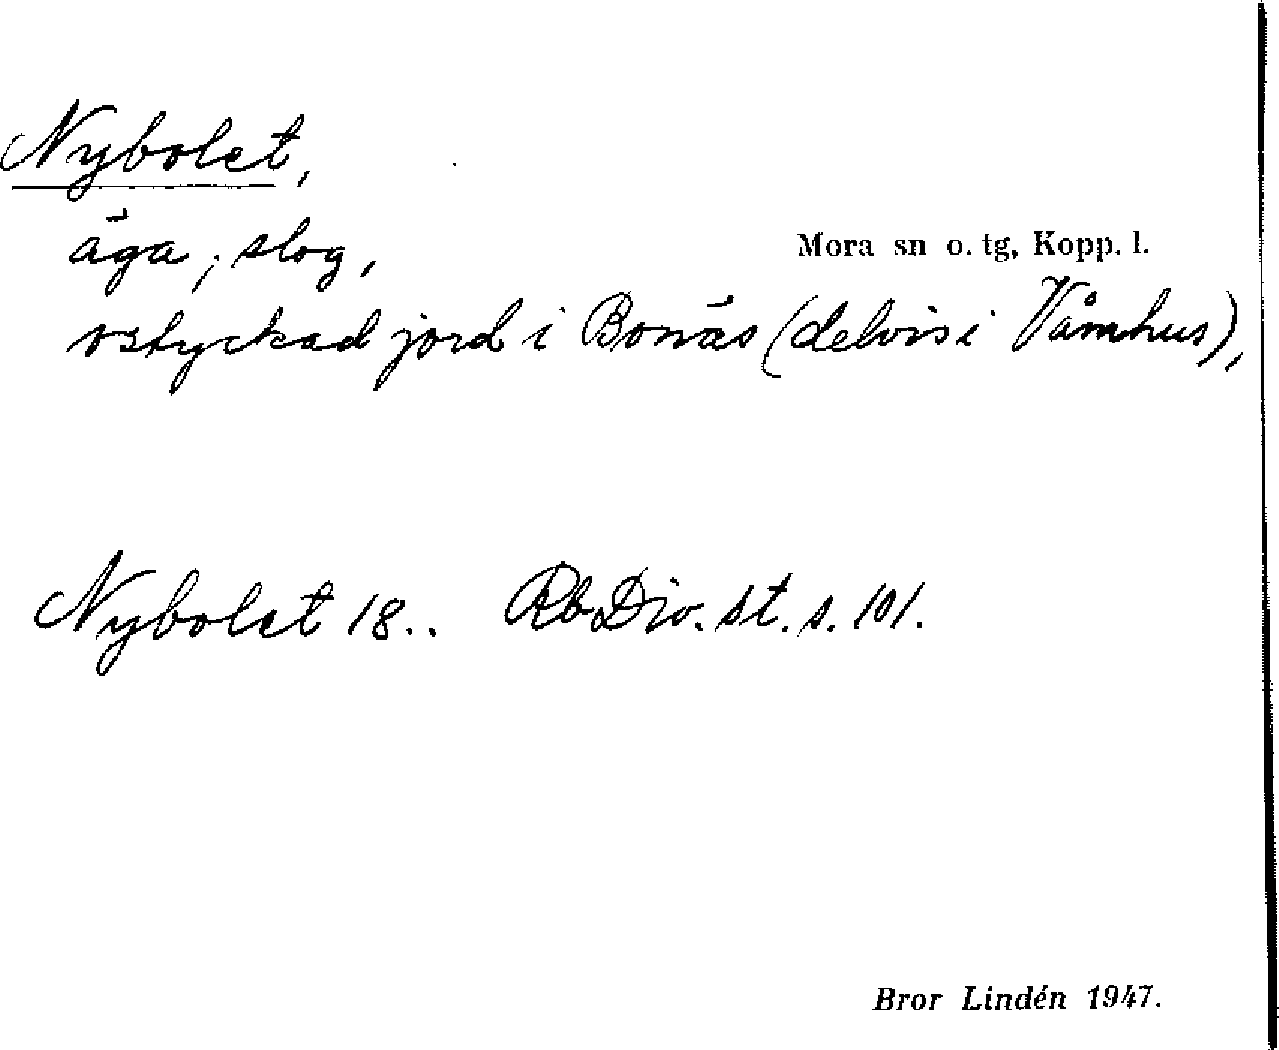 Nybolet,
äga; slog,
Mora sn o. tg, Kopp. l.
ostyckad jord i Bonäs (delvis i Våmhus),
Nybolet 18.. Rb Div. st. s. 101.
Bror Lindén 1947.